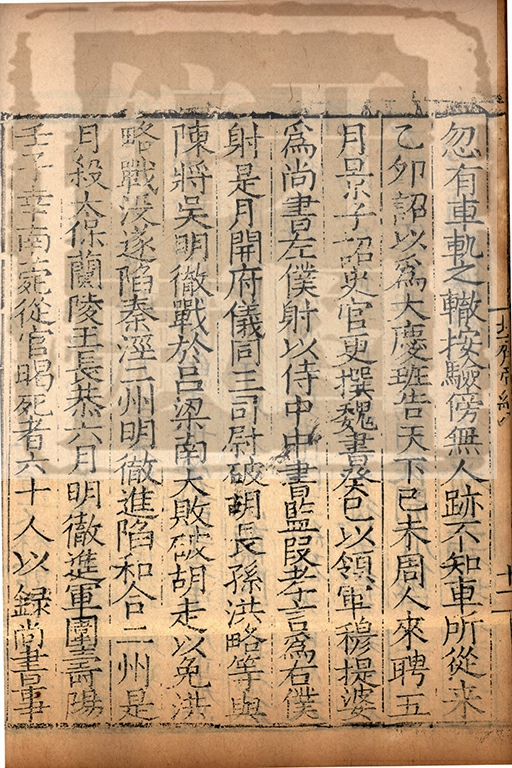 忽有車軌之轍按驗傍無人跡不知車所從來
乙卯詔以爲大慶班告天下己未周人來聘五
月景子詔史官更撰魏書癸巳以領軍穆提婆
爲尚書左僕射以侍中中書監段孝言爲右僕
射是月開府儀同三司尉破胡長孫洪略等與
陳將吳明徹戰於呂梁南大敗破胡走以免洪
略戰没遂陷秦涇二州明徹進陷和合二州是
月殺太保蘭陵王長恭六月明徹進軍圍壽陽
壬子幸南苑從官暍死者六十人以録尚書事